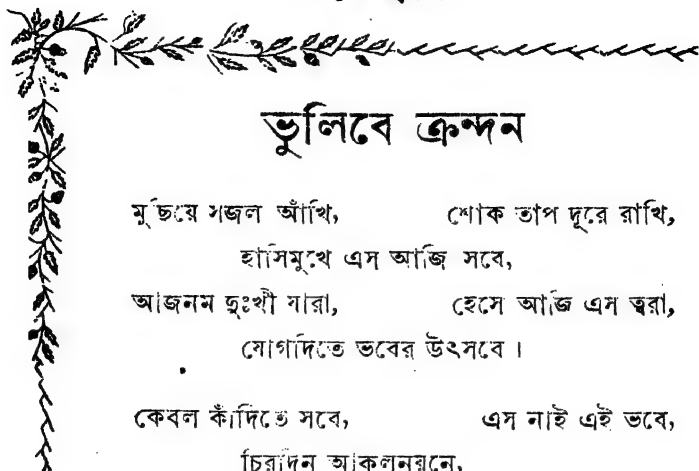 ভুলিবে ক্রন্দন
মুছিয়ে সজল আঁখি, শোক তাপ দূরে রাখি,
হাসিমুখে এস আজি সবে,
আজনম দুঃখী যারা, হেসে আজি এস ত্বরা,
যোগদিতে ভবের উৎসবে।
কেবল কাঁদিতে সবে, এস নাই এই ভবে,
চিরদিন আকুলনয়নে,